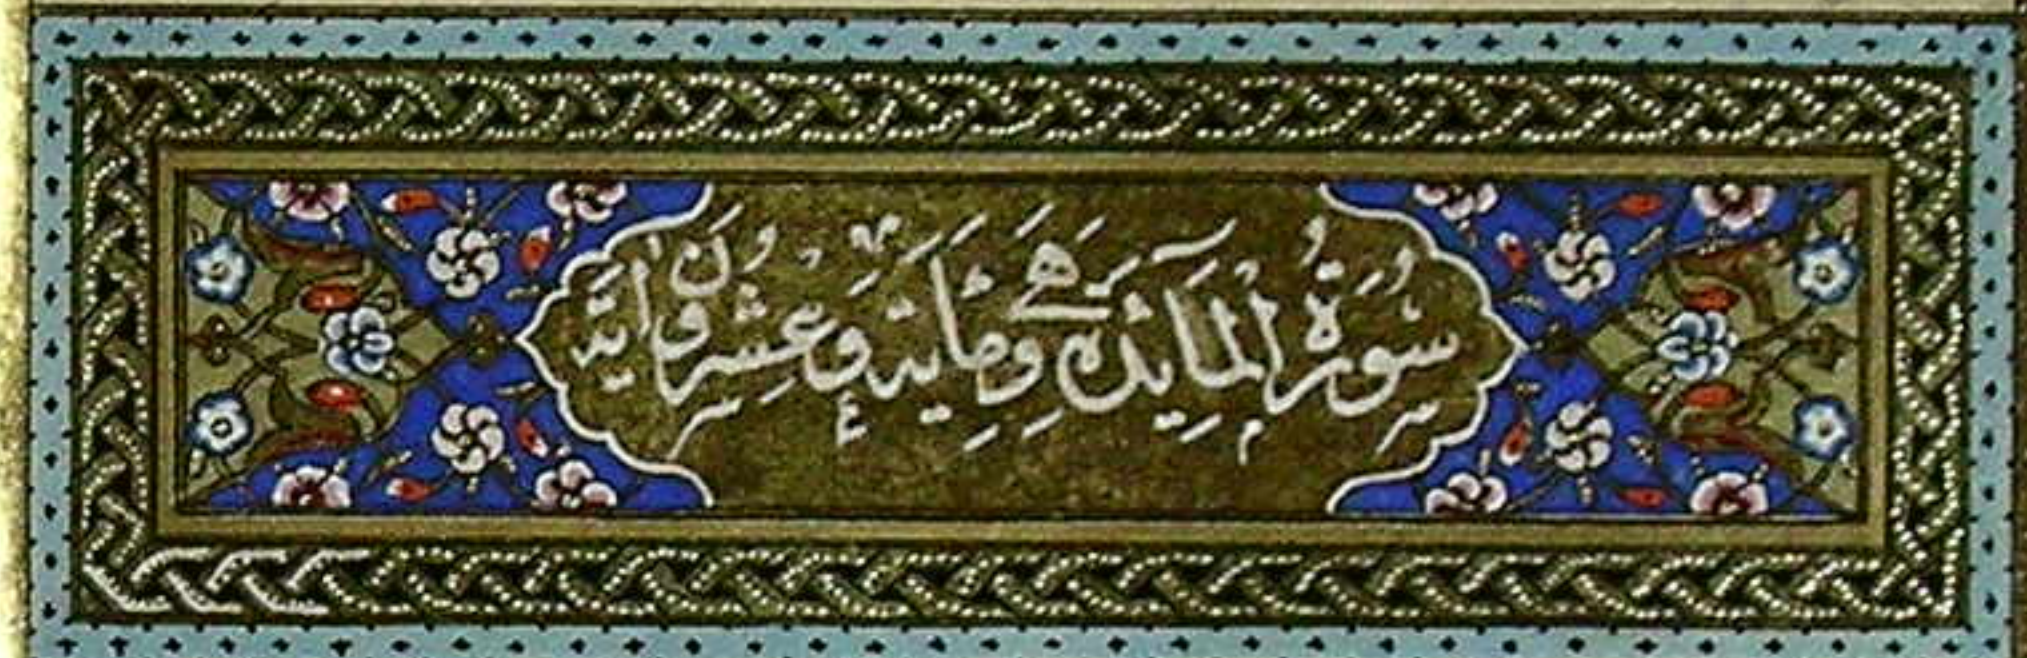 سُورَةُ الْمَآئِدَهِ وَهِيَ مِائَةٌ وَعِشْرُونَ اٰيَةً